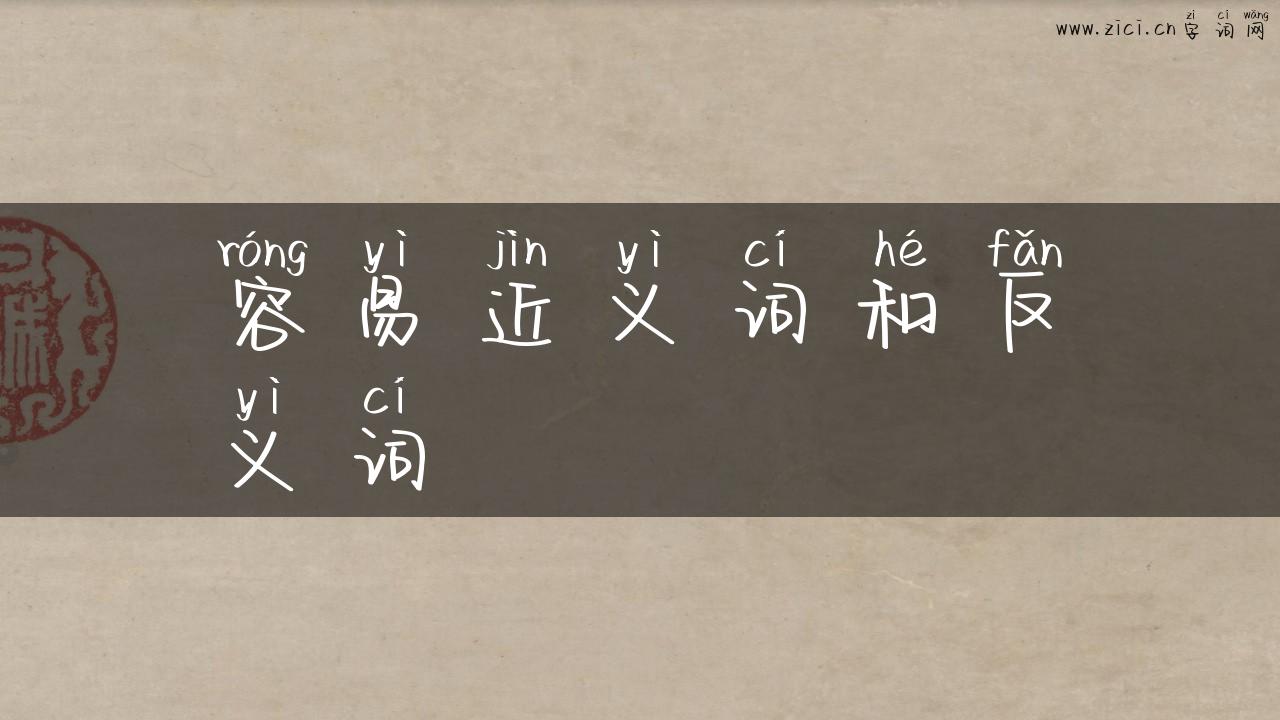 www.zici.cn 字词网
zì cí wǎng
róng yì jìn yì cí hé fǎn
容易近义词和反
yì cí
义词